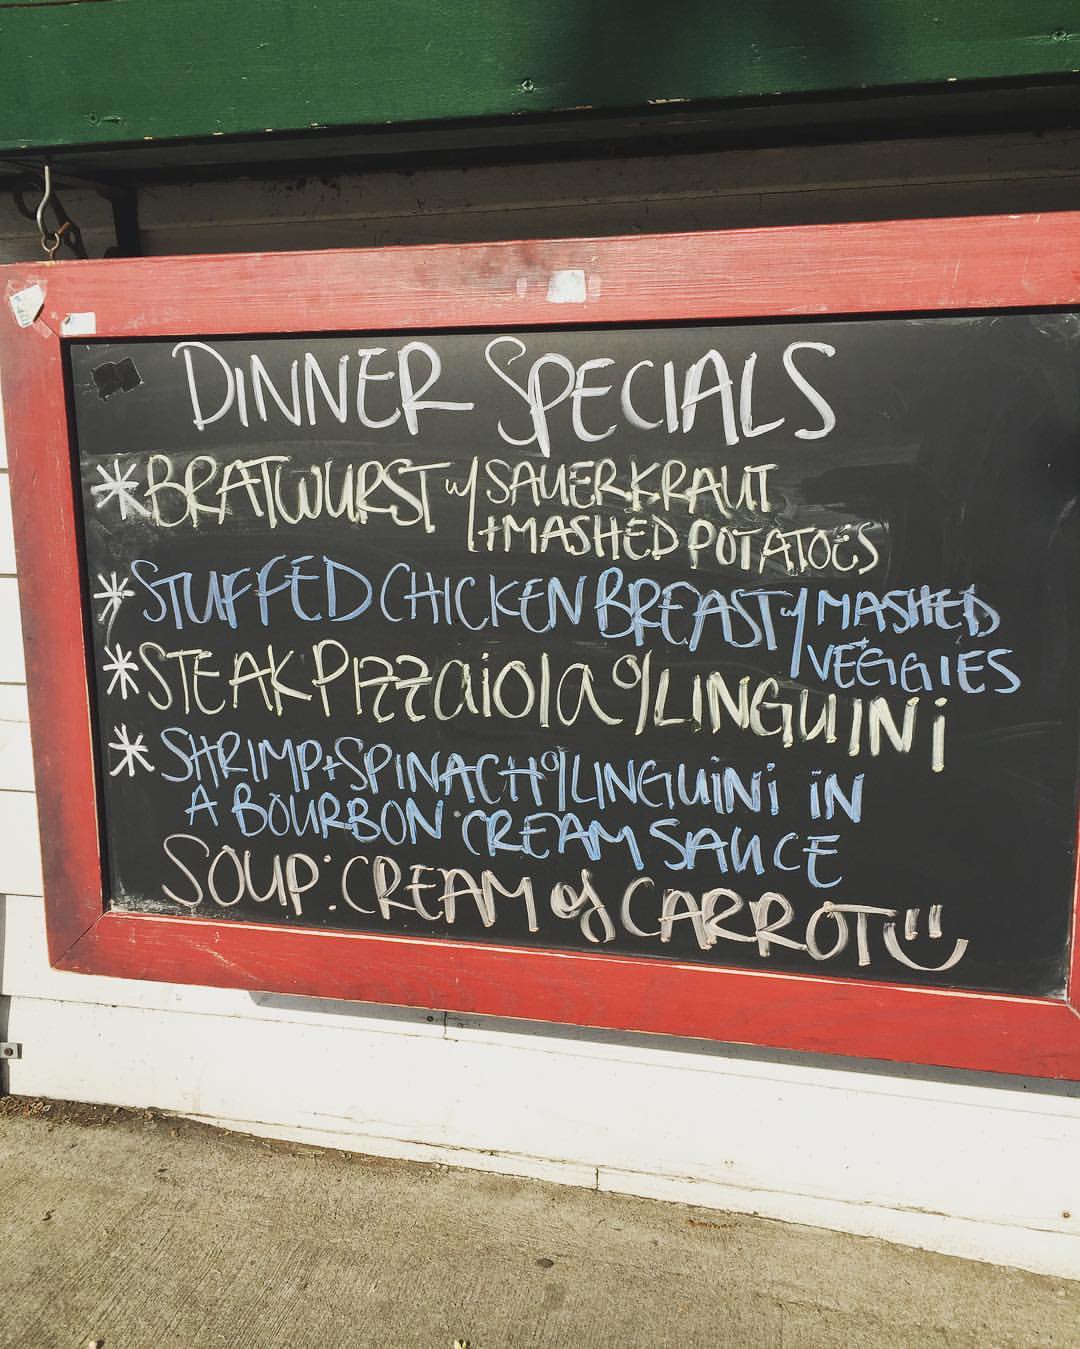 DINNER SPECIALS
*BRATWURST w/ SAUERKRAUT
+MASHED POTATOES
*STUFFED CHICKEN BREAST w/ MASHED
VEGGIES
*STEAK PIZZaiOLa o/ LINGUINi
*SHRIMP+SPINACH o/ LINGUiNi iN
A BOURBON CREAM SAUCE
SOUP: CREAM of CARROT